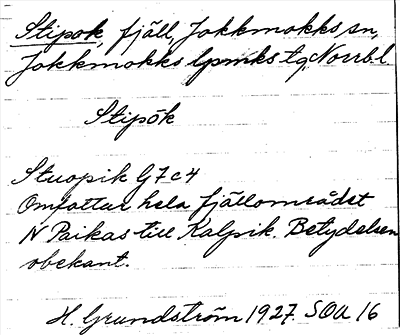 Stipok, fjäll, Jokkmokks sn,
Jokkmokks lpmks tg, Norrb. l.
Stipŏk
Stuopik G7c4
Omfattar hela fjällområdet
N Paikas till Kalpik. Betydelsen
obekant.
H. Grundström 1927. SOU 16